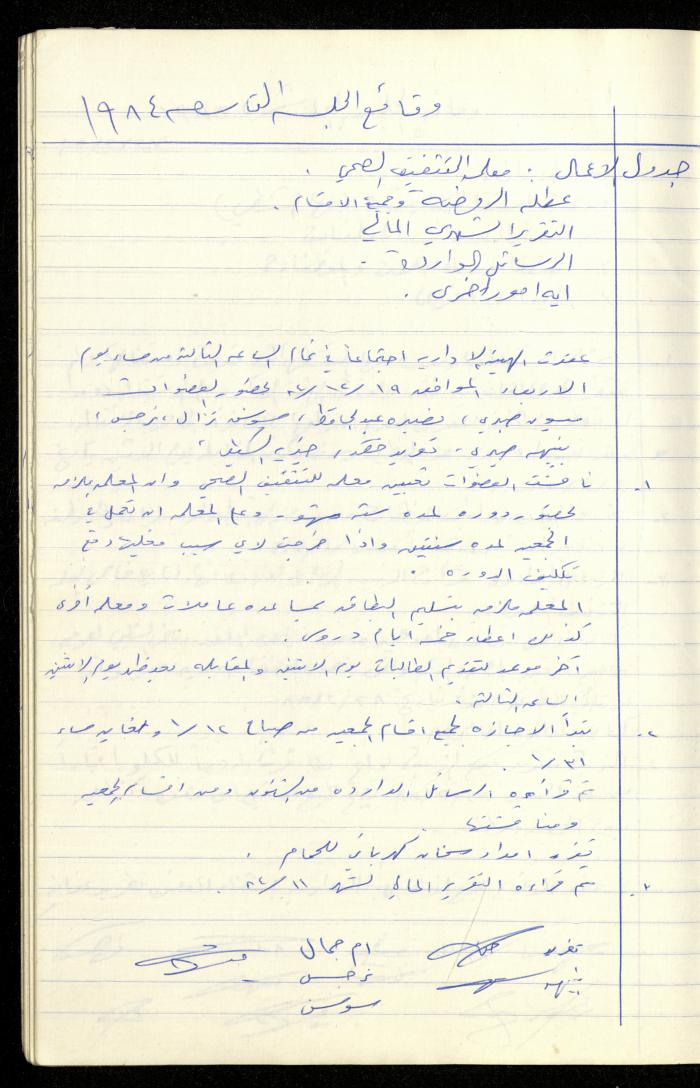 وقائع الجلسه التاسعه ١٩٨٤
جدول الاعمال : معلمه التثقيف الصحي .
عطله الروضه وجميع الاقسام .
التقرير الشهري المالي
الرسائل الوارده .
ايه امور اخرى .
عقدت الهيئه الاداريه اجتماعا في تمام الساعه الثالثه من مساء يوم
الاربعاء الموافق ١٩/١٢/٨٤ بحضور العضوات
ميسون صبري ، نضيره عبد الحافظ ، سوسن نزال ، نرجس ،
بنيهه صبري ، تغريد
١. ناقشت العضوات تعيين معلمه للتثقيف الصحي وان المعلمه ملزمه
بحضور دوره لمده سته شهور وعلى المعلمه ان تعمل في
الجمعيه لمده سنتين واذا خرجت لاي سبب فعليها دفع
تكليف الدوره .
المعلمه ملزمه بتسليم البطاقه بمساعده عاملات ومعلمه اخرى
كذلك اعطاء خمسه ايام دروس .
آخر موعد لتقديم الطالبات يوم الاثنين والمقابله بعد ظهر يوم الاثنين
الساعه الثالثه .
٢. تبدأ الاجازه لجميع اقسام الجمعيه من صباح ١٢/١ ولغايه مساء
٣١/١ .
تم قراءه الرسائل الوارده من الشئون ومن اقسام الجمعيه
ومناقشتها .
تقرر امداد سخان كهربائي للحمام .
٣. تم قراءه التقرير المالي لشهر ١١/٨٤ .
تغريد
ام جمال
نرجس
سوسن